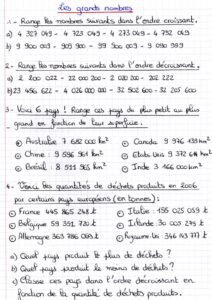 Les grands nombres
1 - Range les nombres suivants dans l'ordre croissant.
a) 4 327 049 - 4 723 049 - 4 273 049 - 4 732 049
b) 9 900 009 - 909 900 - 99 500 009 - 9 090 999
2 - Range les nombres suivants dans l'ordre décroissant.
a) 2 200 022 - 22 000 200 - 2 020 200 - 202 222
b) 23 456 622 - 4 026 000 000 - 32 502 600 - 32 205 600
3 - Voici 6 pays ! Range ces pays du plus petit au plus
grand en fonction de leur superficie.
Australie 7 682 000 km²
Canada 9 976 139 km²
Chine : 9 596 961 km²
Etats Unis 9 372 614 km²
Brésil : 8 511 965 km²
Inde 3 166 000 km²
4 - Voici les quantités de déchets produits en 2006
par certains pays européens (en tonnes) :
France 445 865 248 t
Italie : 155 025 059 t
Belgique 59 351 730 t
Irlande 30 005 279 t
Allemagne 363 786 069 t
Royaume-Uni : 346 143 777 t
a) Quel pays produit le plus de déchets ?
b) Quel pays produit le moins de déchets ?
c) Classe ces pays dans l'ordre décroissant en
fonction de la quantité de déchets produits.